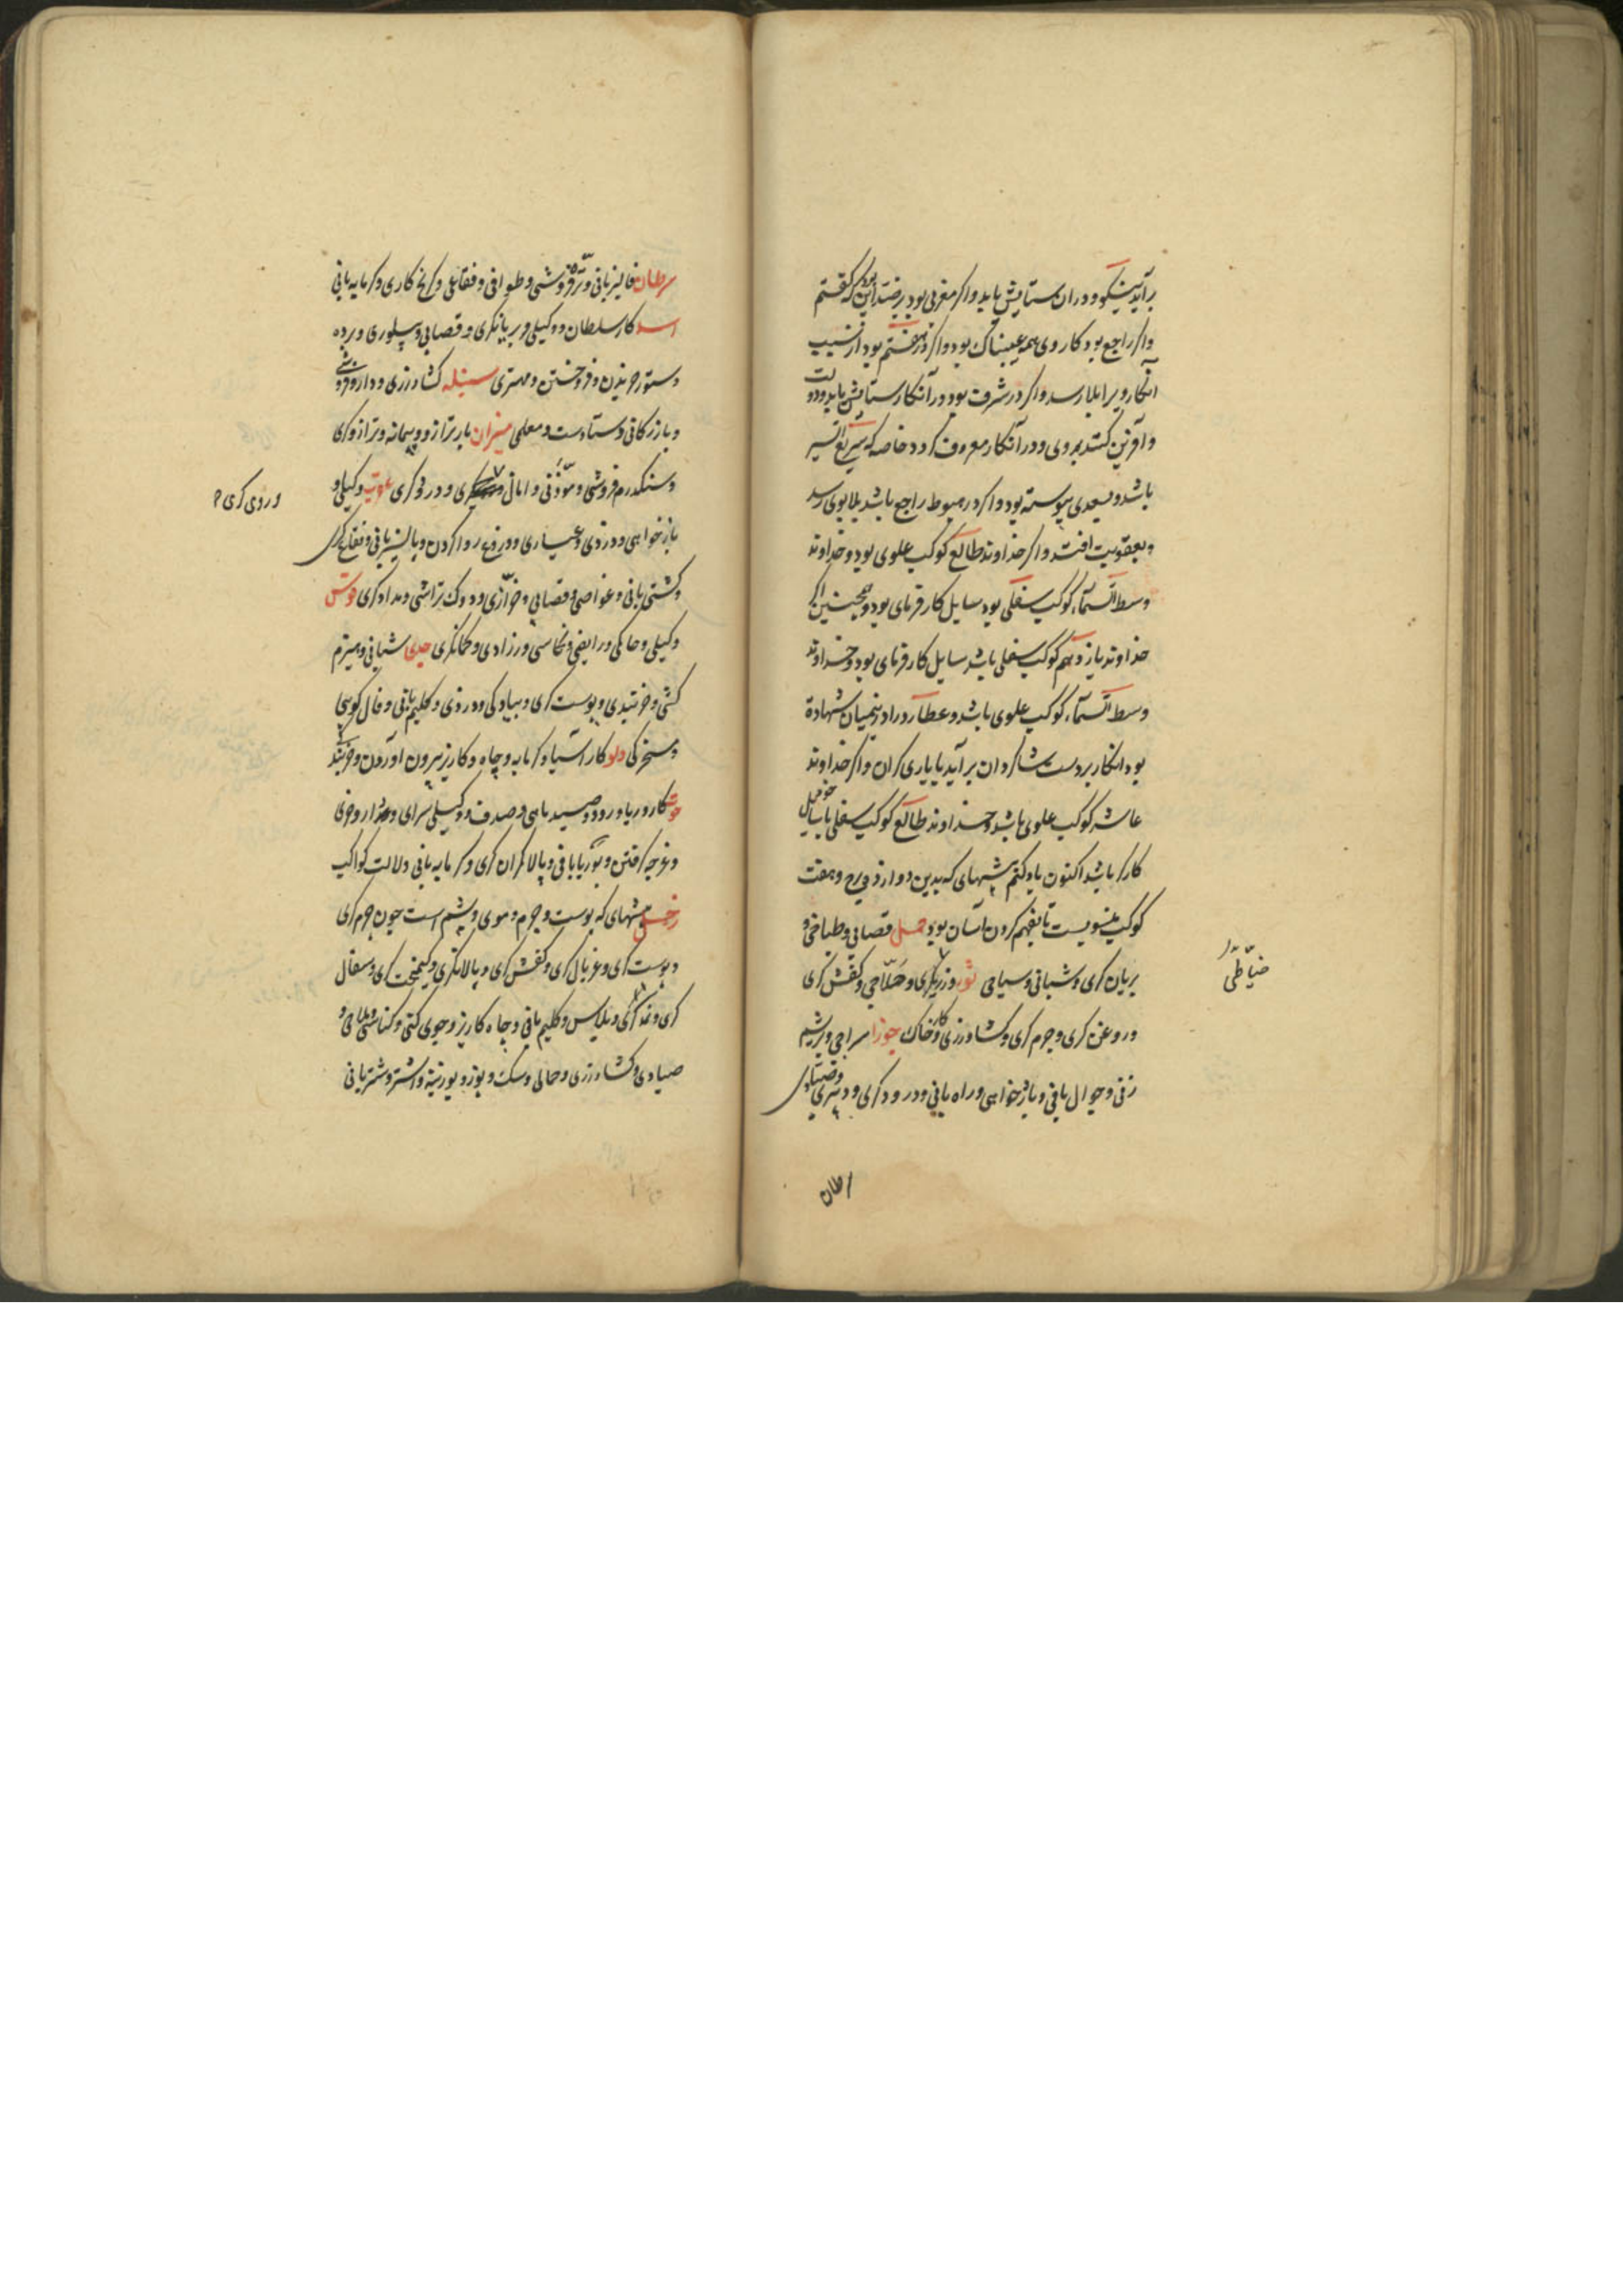 برآید نیکو و دران ستایش یابد و اکر مغربی بود بر ضد این بود که کفتم
و اکر راجع بود کار وی همه عیبناک بود و اکر در هفتم بود از نشیب
انکار ویرا بلا رسد و اکر در شرف بود در آنکار ستایش یابد و دولت
و آفرین کنند بر وی و در آنکار معروف کردد خاصه که سریع السیر
باشد و بسعدی پیوسته بود و اکر در هبوط راجع باشد بلا بوی رسد
و بعقوبت افتد و اکر خداوند طالع کوکب علوی بود و خداوند
وسط السّماء کوکب سفلی بود سایل کار فرمای بود و همچنین اکر
خداوند یازدهم کوکب سفلی باشد سایل کار فرمای بود و خداوند
وسط السّماء کوکب علوی باشد و عطارد را در میان شهادة
بود انکار بر دست شاکردان برآید یا یاری کران و اکر خداوند
عاشر کوکب علوی باشد و خداوند طالع کوکب سفلی باشد سایل خود
کارکر باشد اکنون یاد کنم پیشهای که بدین دوازده برج و هفت
کوکب منسوبست تا بفهم کردن آسان بود حمل قصابی و طباخی و
بریان کری و شبانی و سیاحی ثور و زریکری و حلّاجی و کفش کری
خیّاطی
و روغن کری و چرم کری و کشاورزی و کار خاک جوزا سراجی و بریشم
زنی و جوال بافی و باژخواهی و راه بانی و درودکری و دبیری و صیّادی
رطان
سرطان فالیزبانی و تره فروشی و طوافی و فقاعی و کچ کاری و کرمابه بانی
اسد کار سلطان و وکیلی و بریانکری و قصابی و پیلوری و برده
و ستور خریدن و فروختن و مهتری سنبله کشاورزی و دارو فروشی
و بازرکانی و ستادست و معلمی میزان بار ترازو و پیمانه و ترازوکری
و سنکدرم فروشی و مؤذّنی و امانی و درودکری عقرب وکیلی و
وردی کری
باژخواهی و دزدی و عیاری و دروغ روا کردن و پالیزبانی و فقاع کری
و کشتی بانی و غواصی و قصابی و خرّازی و دوک تراشی و مدادکری قوس
وکیلی و حاکمی و رایضی و نخاسی و زرادی و کمانکری جدی شبانی و هیزم
کشی و خربندی و پوست کری و صیادی و دزدی و کلیم بافی و فال کویی
و مسخرکی دلو کار آسیا و کرمابه و چاه و کاریز بیرون آوردن و خربندکی
حوت کار دریا و رود و صید ماهی و صدف و وکیلی سرای و
و غرچه کرفتن و بوریابافی و پالانکری و کرمابه بانی دلالت کواکب
زحل پیشهای که پوست و چرم و موی و پشم است چون چرم کری
و پوست کری و غربال کری و کفش کری و پالانکری و کیمخت کری و سفال
کری و نمدکری و پلاس و کلیم بافی و چاه کاریز و جوی کنی و کناسی و ملاحی و
صیادی و کشاورزی و حمالی و سک و یوز و بوزینه و اشتر و شتربانی